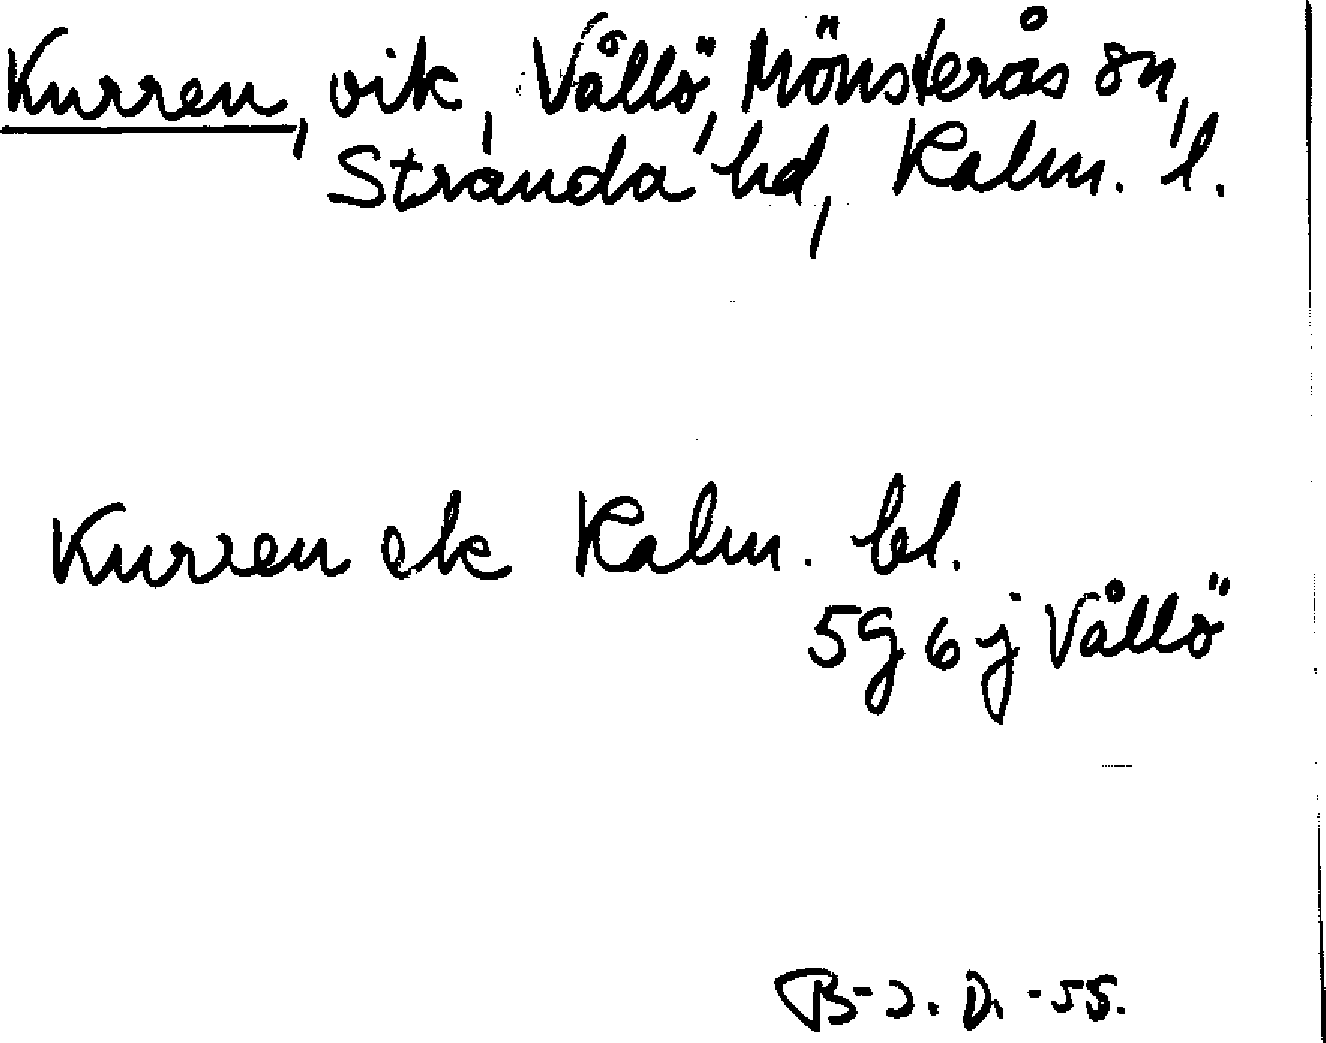 Kurren, vik, Vållö, Mönsterås sn,
Stranda hd, Kalm. l.
Kurren ek Kalm. bl.
5G 6j Vållö
B-J. D. -55.